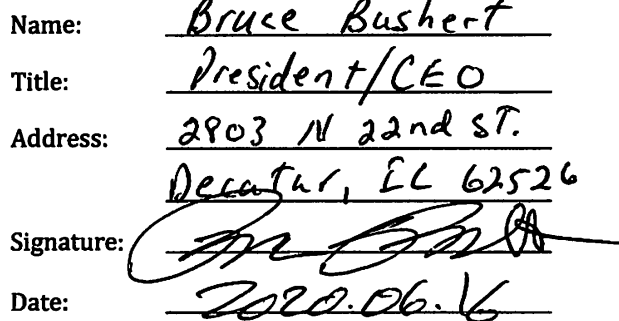 Name: Bruce Bushert
Title: President/CEO
Address: 2903 N 22nd ST.
Decatur, IL 62526
Signature:
Date: 2020.06.16